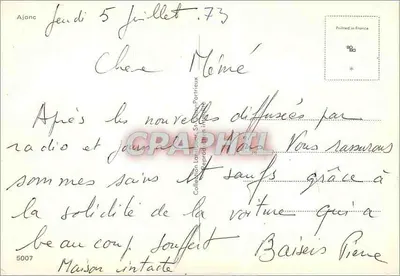 Ajonc
Jeudi 5 juillet 73
Printed in France
Chere Mémé
Après les nouvelles diffusées par
radio et Nous Vous rassurons
sommes sains et saufs grâce à
la solidité de la voiture qui a
beaucoup souffert Baisers Pierre
5007
Maison intacte
GRAPHEL